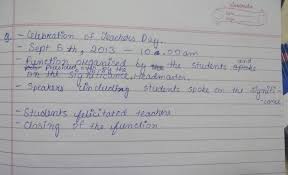 g. - Celebration of Teachers Day.
- Sept 5th, 2013 - 10.00am
- Function organised by the students and
presided spoke
on the significance, Headmaster.
- Speakers including students spoke on the signifi-
cance
- Students felicitated teachers
- Closing of the function